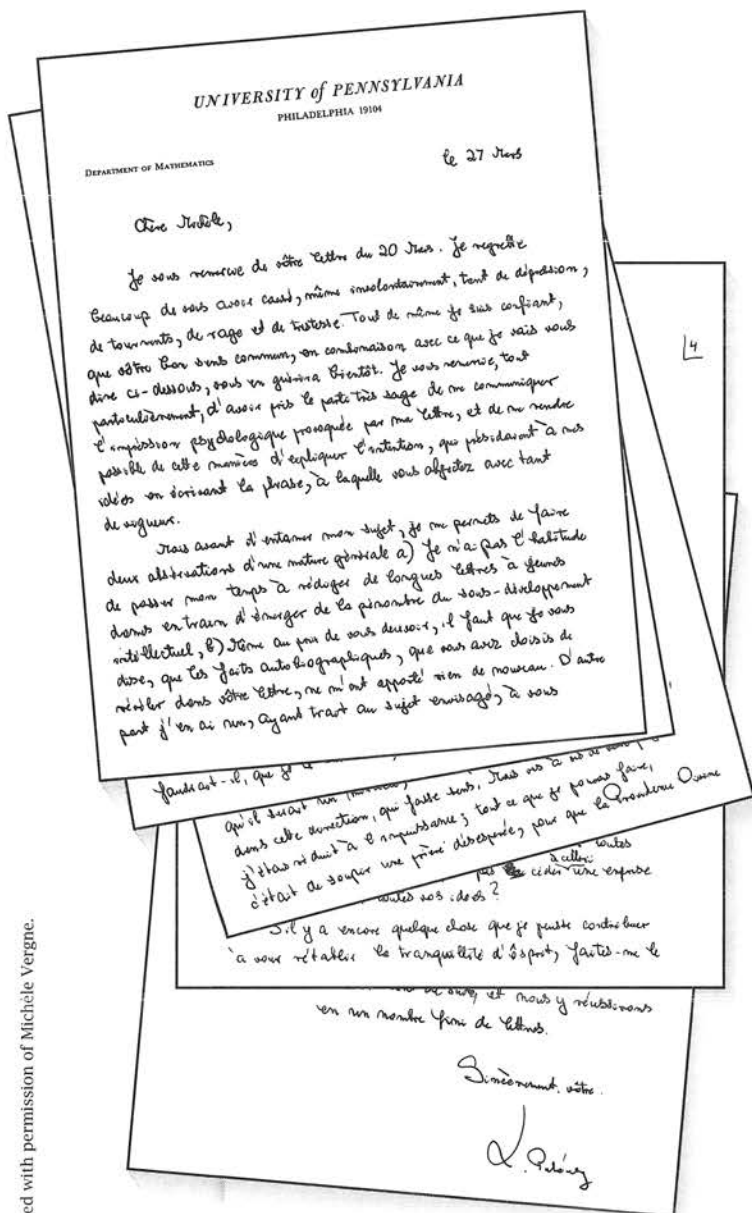 UNIVERSITY of PENNSYLVANIA
PHILADELPHIA 19104
DEPARTMENT OF MATHEMATICS
le 27 Mars
Chère Michèle,
Je vous remercie de vôtre lettre du 20 Mars. Je regrette
beaucoup de vous avoir causé, même involontairement, tant de dépression,
de tourments, de rage et de tristesse. Tout de même je suis confiant,
que vôtre bon sens commun, en combinaison avec ce que je vais vous
dire ci-dessous, vous en guérira bientôt. Je vous remercie, tout
particulièrement, d'avoir pris le parti très sage de me communiquer
l'impression psychologique provoquée par ma lettre, et de me rendre
possible de cette manière d'expliquer l'intention, qui présidaient à mes
idées en écrivant la phrase, à laquelle vous objectez avec tant
de vigueur.
Mais avant d'entamer mon sujet, je me permets de faire
deux observations d'une nature générale a) Je n'ai pas l'habitude
de passer mon temps à rédiger de longues lettres à jeunes
dames en train d'émerger de la pénombre du sous-développement
intellectuel, b) Même au prix de vous decevoir, il faut que je vous
dise, que les faits autobiographiques, que vous avez choisis de
révéler dans vôtre lettre, ne m'ont apporté rien de nouveau. D'autre
part j'en ai un, ayant trait au sujet envisagé, à vous
4
faudrait-il, que je le
qu'il serait un
dans cette direction, qui fasse sens. Mais vis à vis de
j'étais réduit à l'impuissance; tout ce que je pouvais faire,
c'était de soupir une prière désesperée, pour que la Providence Divine
toutes
pas céder une emprise
toutes vos idées?
S'il y a encore quelque chose que je puisse contribuer
à vous rétablir la tranquillité d'ésprit, faites-me le
et nous y réussirons
en un nombre fini de lettres.
Sincèrement vôtre.
L. Pukánszky
ed with permission of Michèle Vergne.